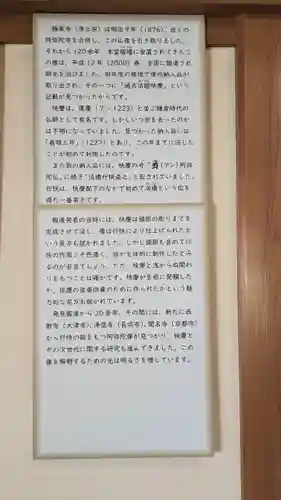 極楽寺(浄土宗)は明治9年(1876)、近くの
阿弥陀寺を合併し、この仏像を引き取りました。
それから120余年 本堂脇壇に安置されてきたこ
の像は、平成12年(2000)春 全国に報道され
脚光を浴びました。前年度の修理で像内納入品が
取り出され、その一つに「過去法眼快慶」という
記載が見つかったからです。
快慶は、運慶(?-1223)と並ぶ鎌倉時代の
仏師として有名です。しかしいつ世を去ったのか
は不明になっていました。見つかった納入品には
「嘉禄三年」(1227)とあり、この年までに没した
ことが初めて判明したのです。
また別の納入品には、快慶の号"(アン)阿弥
陀仏"に続き"法橋行快造之"と記されていました。
行快は、快慶配下のなかで初めて法橋という位を
得た一番弟子です。
報道発表の当時には、快慶は頭部の彫りまでを
完成させて没し、像は行快により仕上げられたと
いう見方も試みられました。しかし頭部も含めて行
快の作風が色濃く、彼が主体的に制作したとみ
るのが妥当でしょう。ただ、快慶と浅からぬ関わ
りをもつことは確かです。快慶が生前に発願した
か、快慶の追善供養のために作られたかという魅
力的な見方も説かれています。
発見報道から20余年、その間には、新たに西
教寺(大津市)、浄信寺(長浜市)、聞名寺(京都市)
から行快の銘をもつ阿弥陀像が見つかり 快慶と
その次世代に関する研究も進んできました。この
像を解明するための光は明るさを増しています。